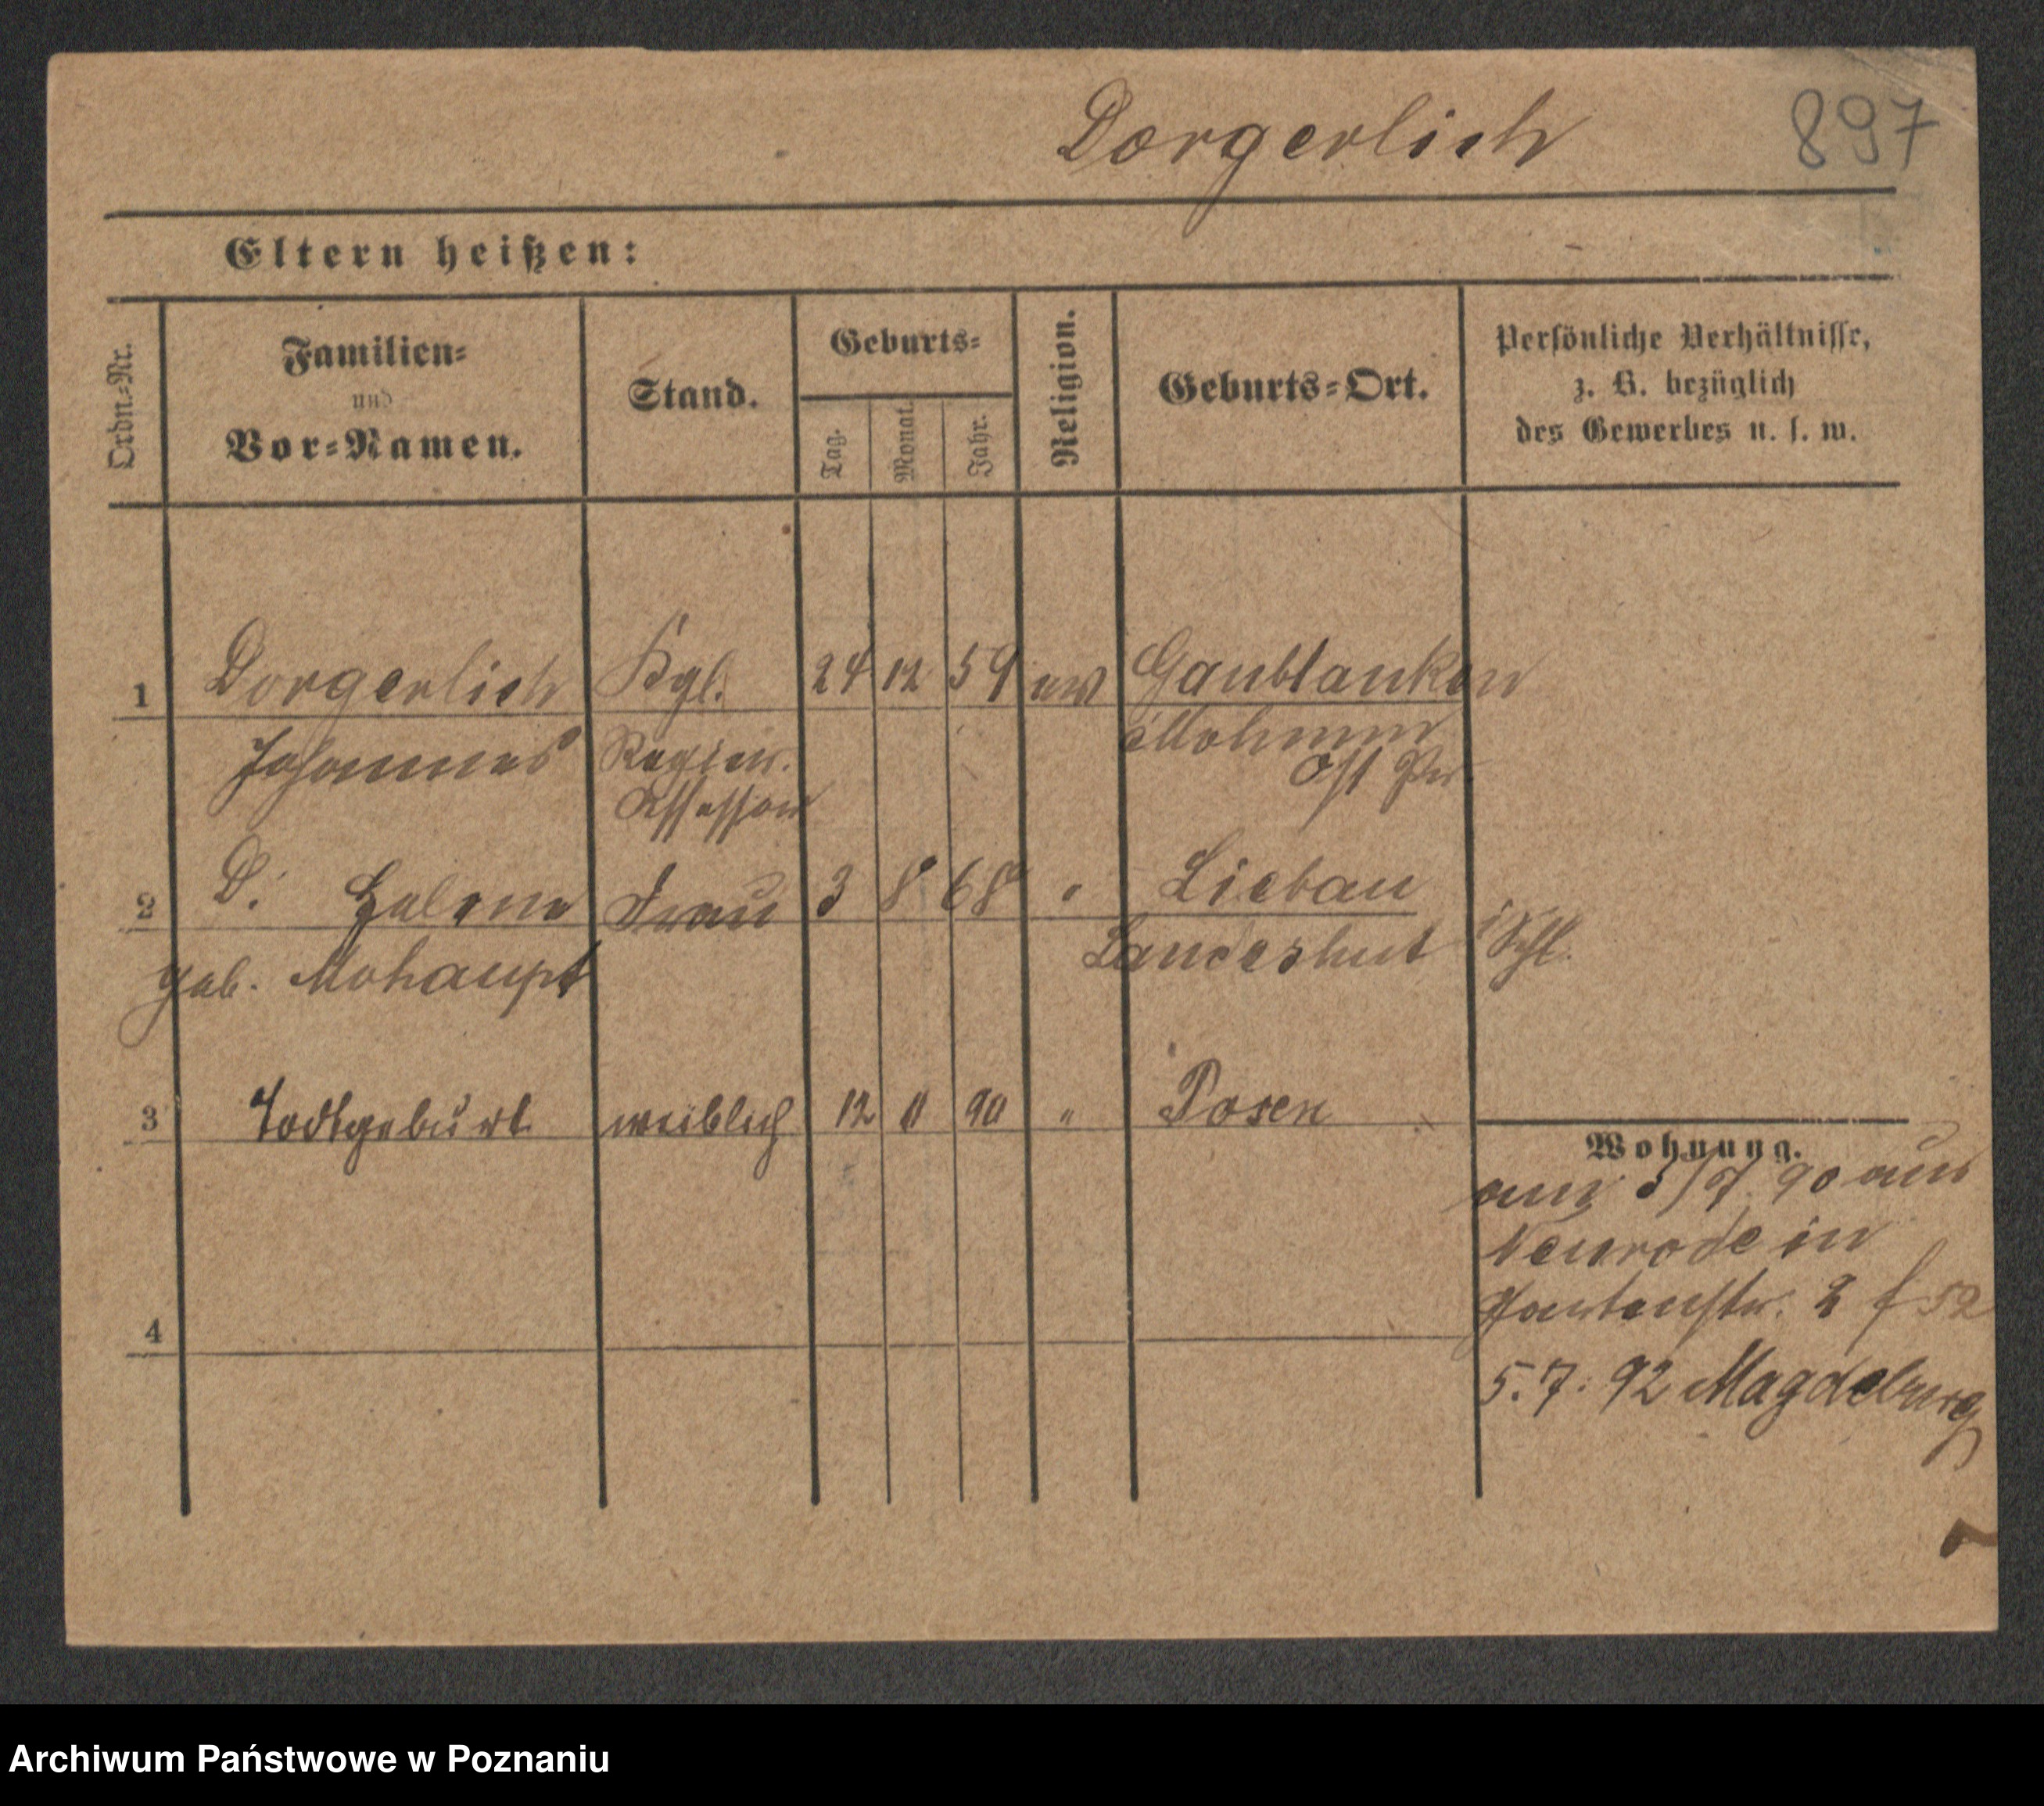 Dorgerlich 897
Eltern heißen:
Ordn.-Nr.
Familien-
und
Vor-Namen.
Stand.
Geburts-
Tag.
Monat.
Jahr.
Religion.
Geburts-Ort.
Persönliche Verhältnisse,
z. B. bezüglich
des Gewerbes u. s. w.
1 Dorgerlich Kgl. 24 12 59 ev
Johannes Regier. Mohrun
Assessor Ost Pr.
2 D. Helene Frau 3 8 68 " Liebau
geb. Mohaupt Landeshut i Schl.
3 Todtgeburt weiblich 12 11 90 " Posen
Wohnung.
am 3/7. 90 aus
Neurode in
Gartenstr. 2 f 52
4
5.7.92 Magdeburg
Archiwum Państwowe w Poznaniu